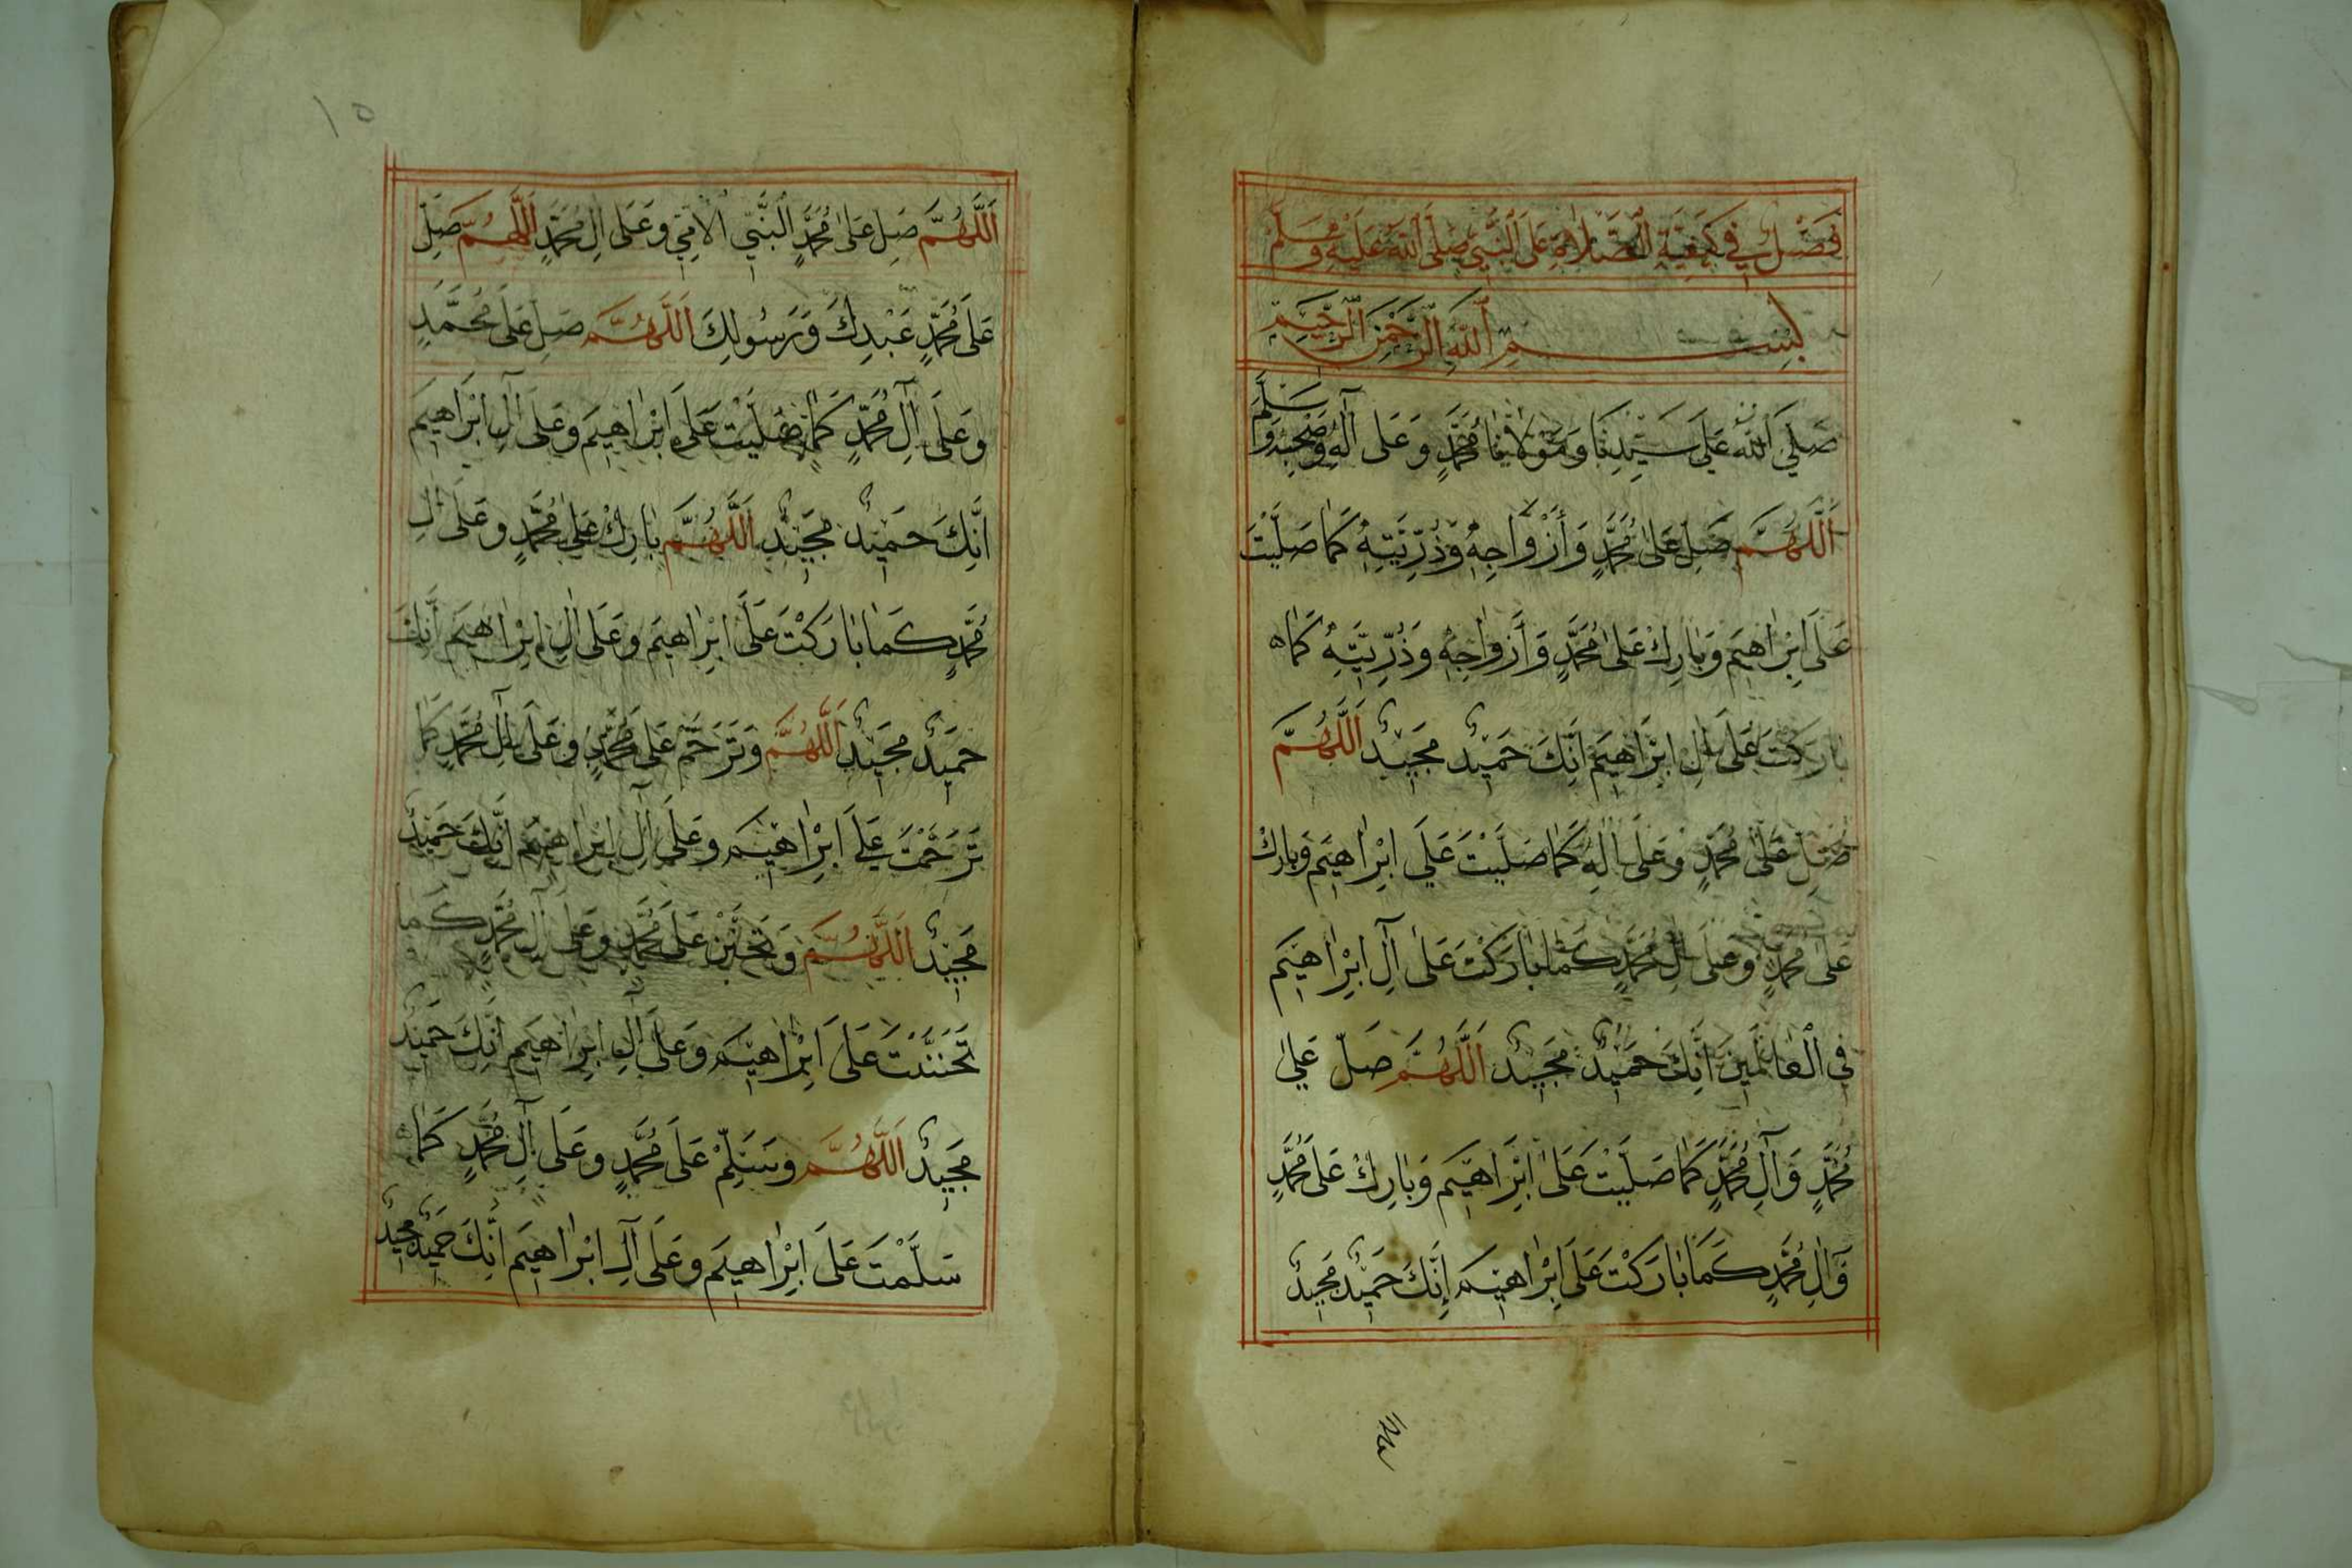 فَصْلٌ فِي كَيْفِيَّةِ الصَّلَاةِ عَلَى النَّبِيِّ صَلَّى اللهُ عَلَيْهِ وَسَلَّمَ
بِسْمِ اللهِ الرَّحْمٰنِ الرَّحِيمِ
صَلَّى اللهُ عَلَى سَيِّدِنَا وَمَوْلَانَا مُحَمَّدٍ وَعَلَى آلِهِ وَصَحْبِهِ وَسَلَّمَ
اَللَّهُمَّ صَلِّ عَلَى مُحَمَّدٍ وَأَزْوَاجِهِ وَذُرِّيَّتِهِ كَمَا صَلَّيْتَ
عَلَى اِبْرَاهِيمَ وَبَارِكْ عَلَى مُحَمَّدٍ وَأَزْوَاجِهِ وَذُرِّيَّتِهِ كَمَا
بَارَكْتَ عَلَى اٰلِ اِبْرَاهِيمَ اِنَّكَ حَمِيدٌ مَجِيدٌ اَللَّهُمَّ
صَلِّ عَلَى مُحَمَّدٍ وَعَلَى اٰلِهِ كَمَا صَلَّيْتَ عَلَى اِبْرَاهِيمَ وَبَارِكْ
عَلَى مُحَمَّدٍ وَعَلَى اٰلِ مُحَمَّدٍ كَمَا بَارَكْتَ عَلَى آلِ اِبْرَاهِيمَ
فِي الْعَالَمِينَ اِنَّكَ حَمِيدٌ مَجِيدٌ اَللَّهُمَّ صَلِّ عَلَى
مُحَمَّدٍ وَآلِ مُحَمَّدٍ كَمَا صَلَّيْتَ عَلَى اِبْرَاهِيمَ وَبَارِكْ عَلَى مُحَمَّدٍ
وَاٰلِ مُحَمَّدٍ كَمَا بَارَكْتَ عَلَى اِبْرَاهِيمَ إِنَّكَ حَمِيدٌ مَجِيدٌ
١٥
اَللَّهُمَّ صَلِّ عَلَى مُحَمَّدٍ النَّبِيِّ الْاُمِّيِّ وَعَلَى اٰلِ مُحَمَّدٍ اَللَّهُمَّ صَلِّ
عَلَى مُحَمَّدٍ عَبْدِكَ وَرَسُولِكَ اَللَّهُمَّ صَلِّ عَلَى مُحَمَّدٍ
وَعَلَى آلِ مُحَمَّدٍ كَمَا صَلَّيْتَ عَلَى اِبْرَاهِيمَ وَعَلَى اٰلِ اِبْرَاهِيمَ
اِنَّكَ حَمِيدٌ مَجِيدٌ اَللَّهُمَّ بَارِكْ عَلَى مُحَمَّدٍ وَعَلَى اٰلِ
مُحَمَّدٍ كَمَا بَارَكْتَ عَلَى اِبْرَاهِيمَ وَعَلَى اٰلِ اِبْرَاهِيمَ اِنَّكَ
حَمِيدٌ مَجِيدٌ اَللَّهُمَّ وَتَرَحَّمْ عَلَى مُحَمَّدٍ وَعَلَى آلِ مُحَمَّدٍ كَمَا
تَرَحَّمْتَ عَلَى اِبْرَاهِيمَ وَعَلَى آلِ اِبْرَاهِيمَ اِنَّكَ حَمِيدٌ
مَجِيدٌ اَللَّهُمَّ وَتَحَنَّنْ عَلَى مُحَمَّدٍ وَعَلَى آلِ مُحَمَّدٍ كَمَا
تَحَنَّنْتَ عَلَى اِبْرَاهِيمَ وَعَلَى آلِ اِبْرَاهِيمَ اِنَّكَ حَمِيدٌ
مَجِيدٌ اَللَّهُمَّ وَسَلِّمْ عَلَى مُحَمَّدٍ وَعَلَى آلِ مُحَمَّدٍ كَمَا
سَلَّمْتَ عَلَى اِبْرَاهِيمَ وَعَلَى آلِ اِبْرَاهِيمَ اِنَّكَ حَمِيدٌ مَجِيدٌ